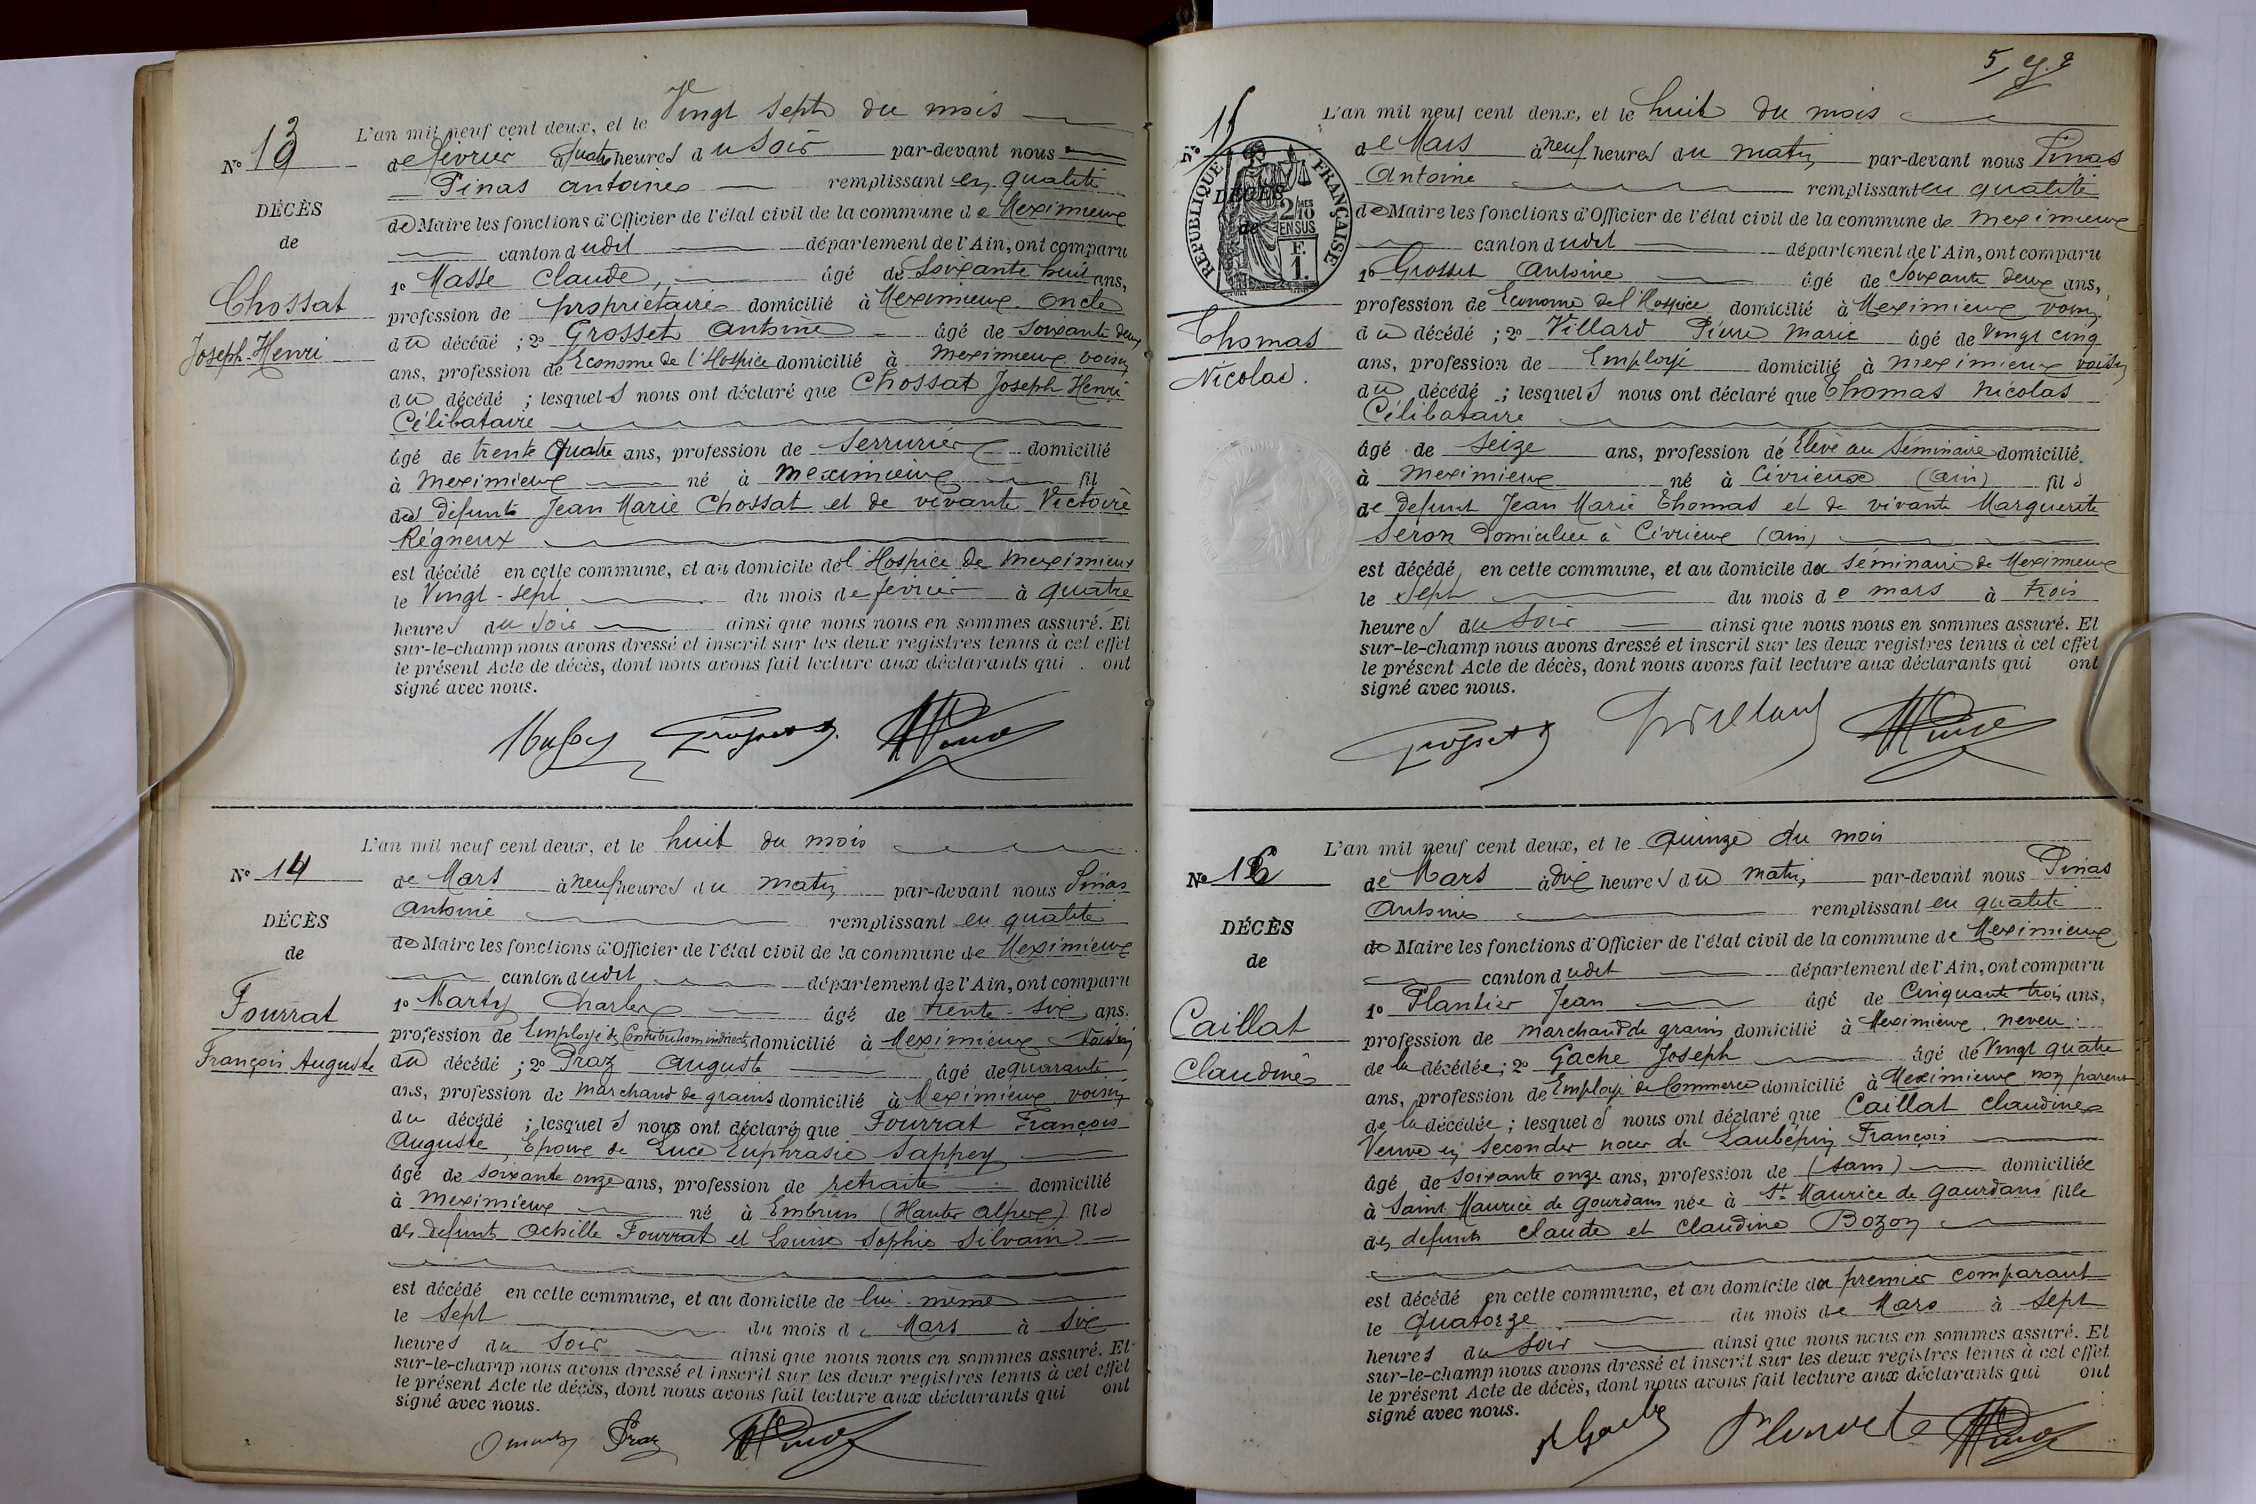 N° 13
DÉCÈS
de
Chossat
Joseph-Henri
L'an mil neuf cent deux, et le Vingt sept du mois
de février à quatre heures du soir par-devant nous
Pinas antoine remplissant en qualité
de Maire les fonctions d'Officier de l'état civil de la commune de Meximieux
canton dudit département de l'Ain, ont comparu
1° Masse Claude, âgé de soixante huit ans,
profession de propriétaire domicilié à Meximieux oncle
du décédé ; 2° Grosset antoine âgé de soixante deux
ans, profession de Econome de l'Hospice domicilié à Meximieux voisin
du décédé ; lesquels nous ont déclaré que Chossat Joseph Henri
Célibataire
âgé de trente quatre ans, profession de serrurier domicilié
à Meximieux né à Meximieux fil
des défunts Jean Marie Chossat et de vivante Victoire
Régneux
est décédé en cette commune, et au domicile de l'Hospice de Meximieux
le Vingt-sept du mois de février à quatre
heures du soir ainsi que nous nous en sommes assuré. Et
sur-le-champ nous avons dressé et inscrit sur les deux registres tenus à cet effet
le présent Acte de décès, dont nous avons fait lecture aux déclarants qui ont
signé avec nous.
N° 14
DÉCÈS
de
Fourrat
François Auguste
L'an mil neuf cent deux, et le huit du mois
de Mars à neuf heures du matin par-devant nous Pinas
Antoine remplissant en qualité
de Maire les fonctions d'Officier de l'état civil de la commune de Meximieux
canton dudit département de l'Ain, ont comparu
1° Marty Charles âgé de trente six ans.
profession de Employé des Contributions indirectes domicilié à Meximieux Voisin
du décédé ; 2° Praz auguste âgé de quarante
ans, profession de marchand de grains domicilié à Meximieux voisin
du décédé ; lesquels nous ont déclaré que Fourrat François
Auguste, Epoux de Luce Euphrasie Sappey
âgé de soixante onze ans, profession de retraité domicilié
à Meximieux né à Embrun (Hautes Alpes) fils
des défunts Achille Fourrat et Louise Sophie Silvain
est décédé en cette commune, et au domicile de lui-même
le sept du mois de Mars à six
heures du soir ainsi que nous nous en sommes assuré. Et
sur-le-champ nous avons dressé et inscrit sur les deux registres tenus à cet effet
le présent Acte de décès, dont nous avons fait lecture aux déclarants qui ont
signé avec nous.
Praz
N° 15
RÉPUBLIQUE FRANÇAISE
2/10 EN SUS
F. 1.
DÉCÈS
de
Thomas
Nicolas.
L'an mil neuf cent deux, et le huit du mois
de Mars à neuf heures du matin par-devant nous Pinas
Antoine remplissant en qualité
de Maire les fonctions d'Officier de l'état civil de la commune de Meximieux
canton dudit département de l'Ain, ont comparu
1° Grosset Antoine âgé de soixante deux ans,
profession de Econome de l'Hospice domicilié à Meximieux voisin
du décédé ; 2° Villard Pierre Marie âgé de vingt cinq
ans, profession de Employé domicilié à Meximieux voisin
du décédé ; lesquels nous ont déclaré que Thomas Nicolas
Célibataire
âgé de seize ans, profession de Elève au Séminaire domicilié
à Meximieux né à Civrieux (ain) fils
de défunt Jean Marie Thomas et de vivante Marguerite
Séron domiciliée à Civrieux (ain)
est décédé en cette commune, et au domicile du Séminaire de Meximieux
le Sept du mois de mars à trois
heures du soir ainsi que nous nous en sommes assuré. Et
sur-le-champ nous avons dressé et inscrit sur les deux registres tenus à cet effet
le présent Acte de décès, dont nous avons fait lecture aux déclarants qui ont
signé avec nous.
Grosset Villard
N° 16
DÉCÈS
de
Caillat
Claudine
L'an mil neuf cent deux, et le quinze du mois
de Mars à dix heures du matin, par-devant nous Pinas
Antoine remplissant en qualité
de Maire les fonctions d'Officier de l'état civil de la commune de Meximieux
canton dudit département de l'Ain, ont comparu
1° Plantier Jean âgé de cinquante trois ans,
profession de marchand de grains domicilié à Meximieux neveu
de la décédée ; 2° Gache Joseph âgé de Vingt quatre
ans, profession de Employé de Commerce domicilié à Meximieux non parent
de la décédée ; lesquels nous ont déclaré que Caillat Claudine
Veuve en secondes noces de Laubépin François
âgé de soixante onze ans, profession de (sans) domiciliée
à Saint Maurice de Gourdans née à St Maurice de Gourdans fille
des défunts Claude et Claudine Bozon
est décédé en cette commune, et au domicile du premier comparant
le quatorze du mois de Mars à sept
heures du soir ainsi que nous nous en sommes assuré. Et
sur-le-champ nous avons dressé et inscrit sur les deux registres tenus à cet effet
le présent Acte de décès, dont nous avons fait lecture aux déclarants qui ont
signé avec nous.